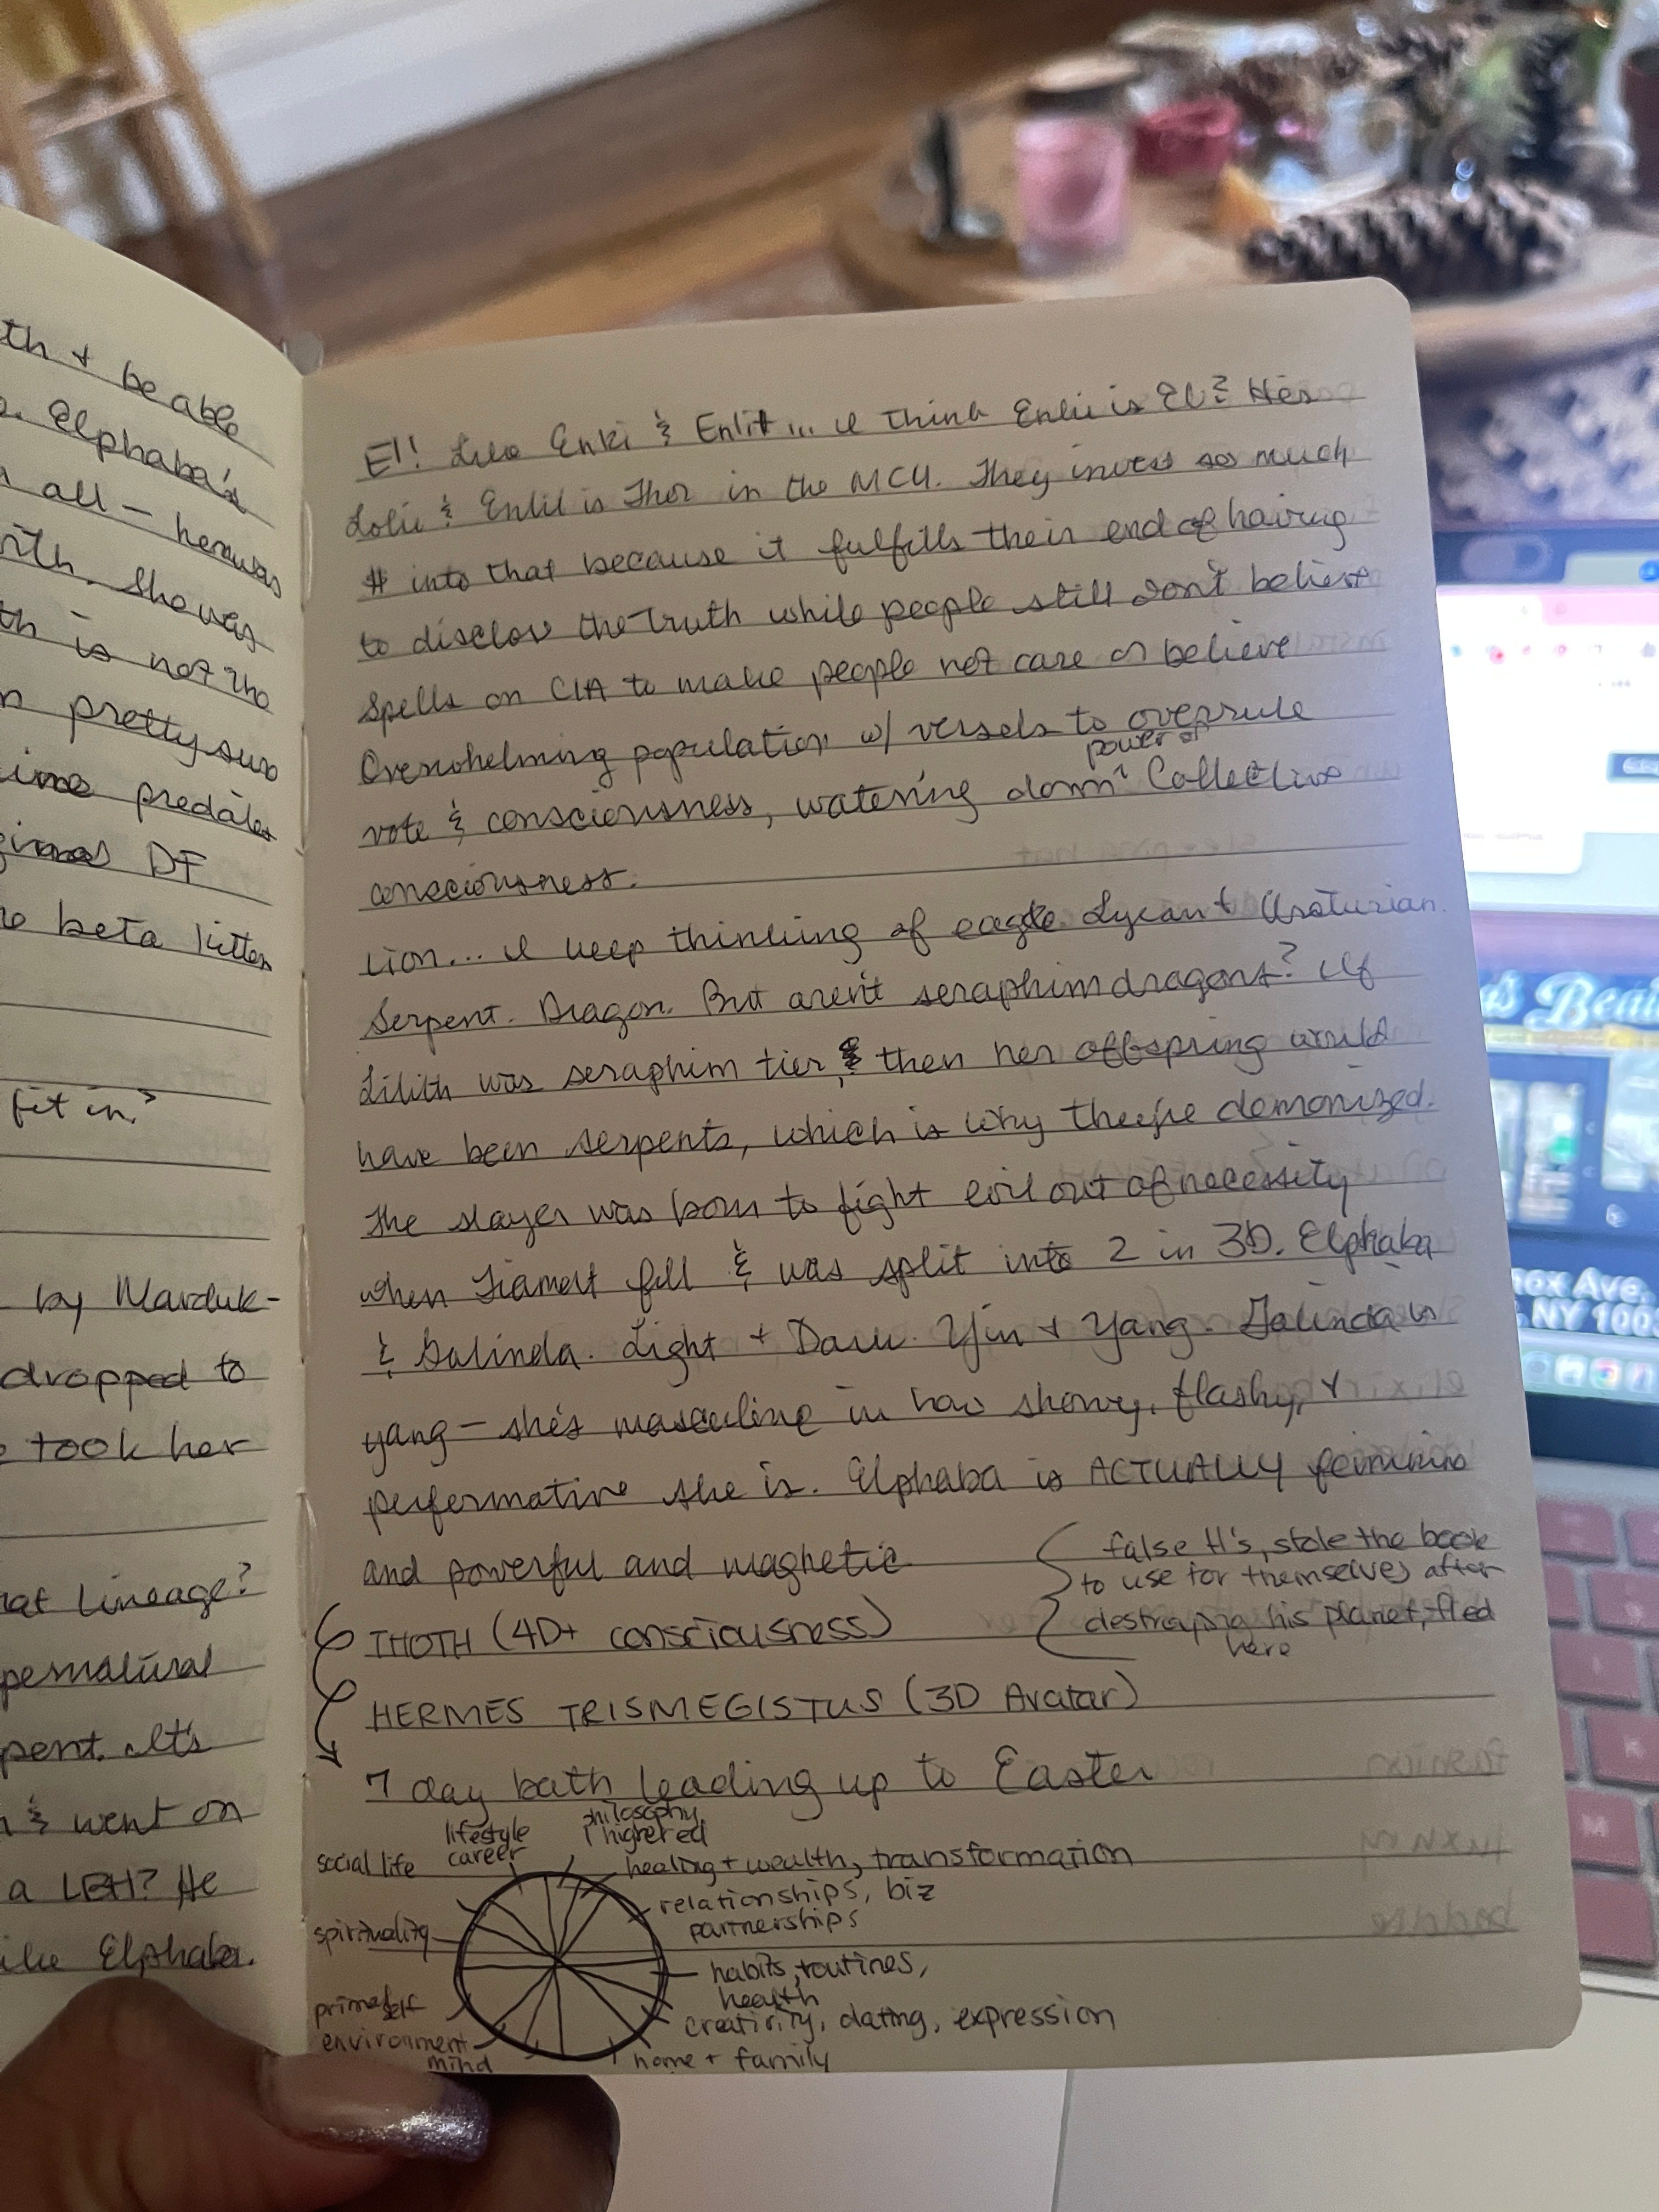 th + be able
Elphaba's
all – her was
ith. She was
th is not the
n pretty sure
predates
DF
beta kitten
fit in?
by Marduk-
dropped to
took her
at lineage?
pernatural
pent. It's
& went on
a LBH? He
like Elphaba.
El! Like Enki & Enlil... I think Enki is El? He's
Loki & Enlil is Thor in the MCU. They invest so much
$ into that because it fulfills their end of having
to disclose the truth while people still don't believe
Spells on CIA to make people not care or believe
Overwhelming population w/ vessels to overrule
vote & consciousness, watering down power of Collective
consciousness.
Lion... I keep thinking of eagle. Lycan + Urs
Serpent. Dragon. But aren't seraphim dragons? If
Lilith was seraphim tier, & then her offspring would
have been serpents, which is why they're demonized.
The slayer was born to fight evil out of necessity
when Tiamat fell & was split into 2 in 3D. Elphaba
& Galinda. Light + Dark. Yin + Yang. Galinda is
yang – she's masculine in how showy, flashy, +
performative she is. Elphaba is ACTUALLY feminine
and powerful and magnetic.
false H's, stole the book
to use for themselves after
destroying his planet, fled
here
THOTH (4D+ consciousness)
HERMES TRISMEGISTUS (3D Avatar)
7 day bath leading up to Easter
philosophy
higher ed
lifestyle
career
social life
healing + wealth, transformation
relationships, biz
partnerships
spirituality
habits, routines,
health
primal self
creativity, dating, expression
environment
mind
home + family
Beau
nox Ave,
NY 100